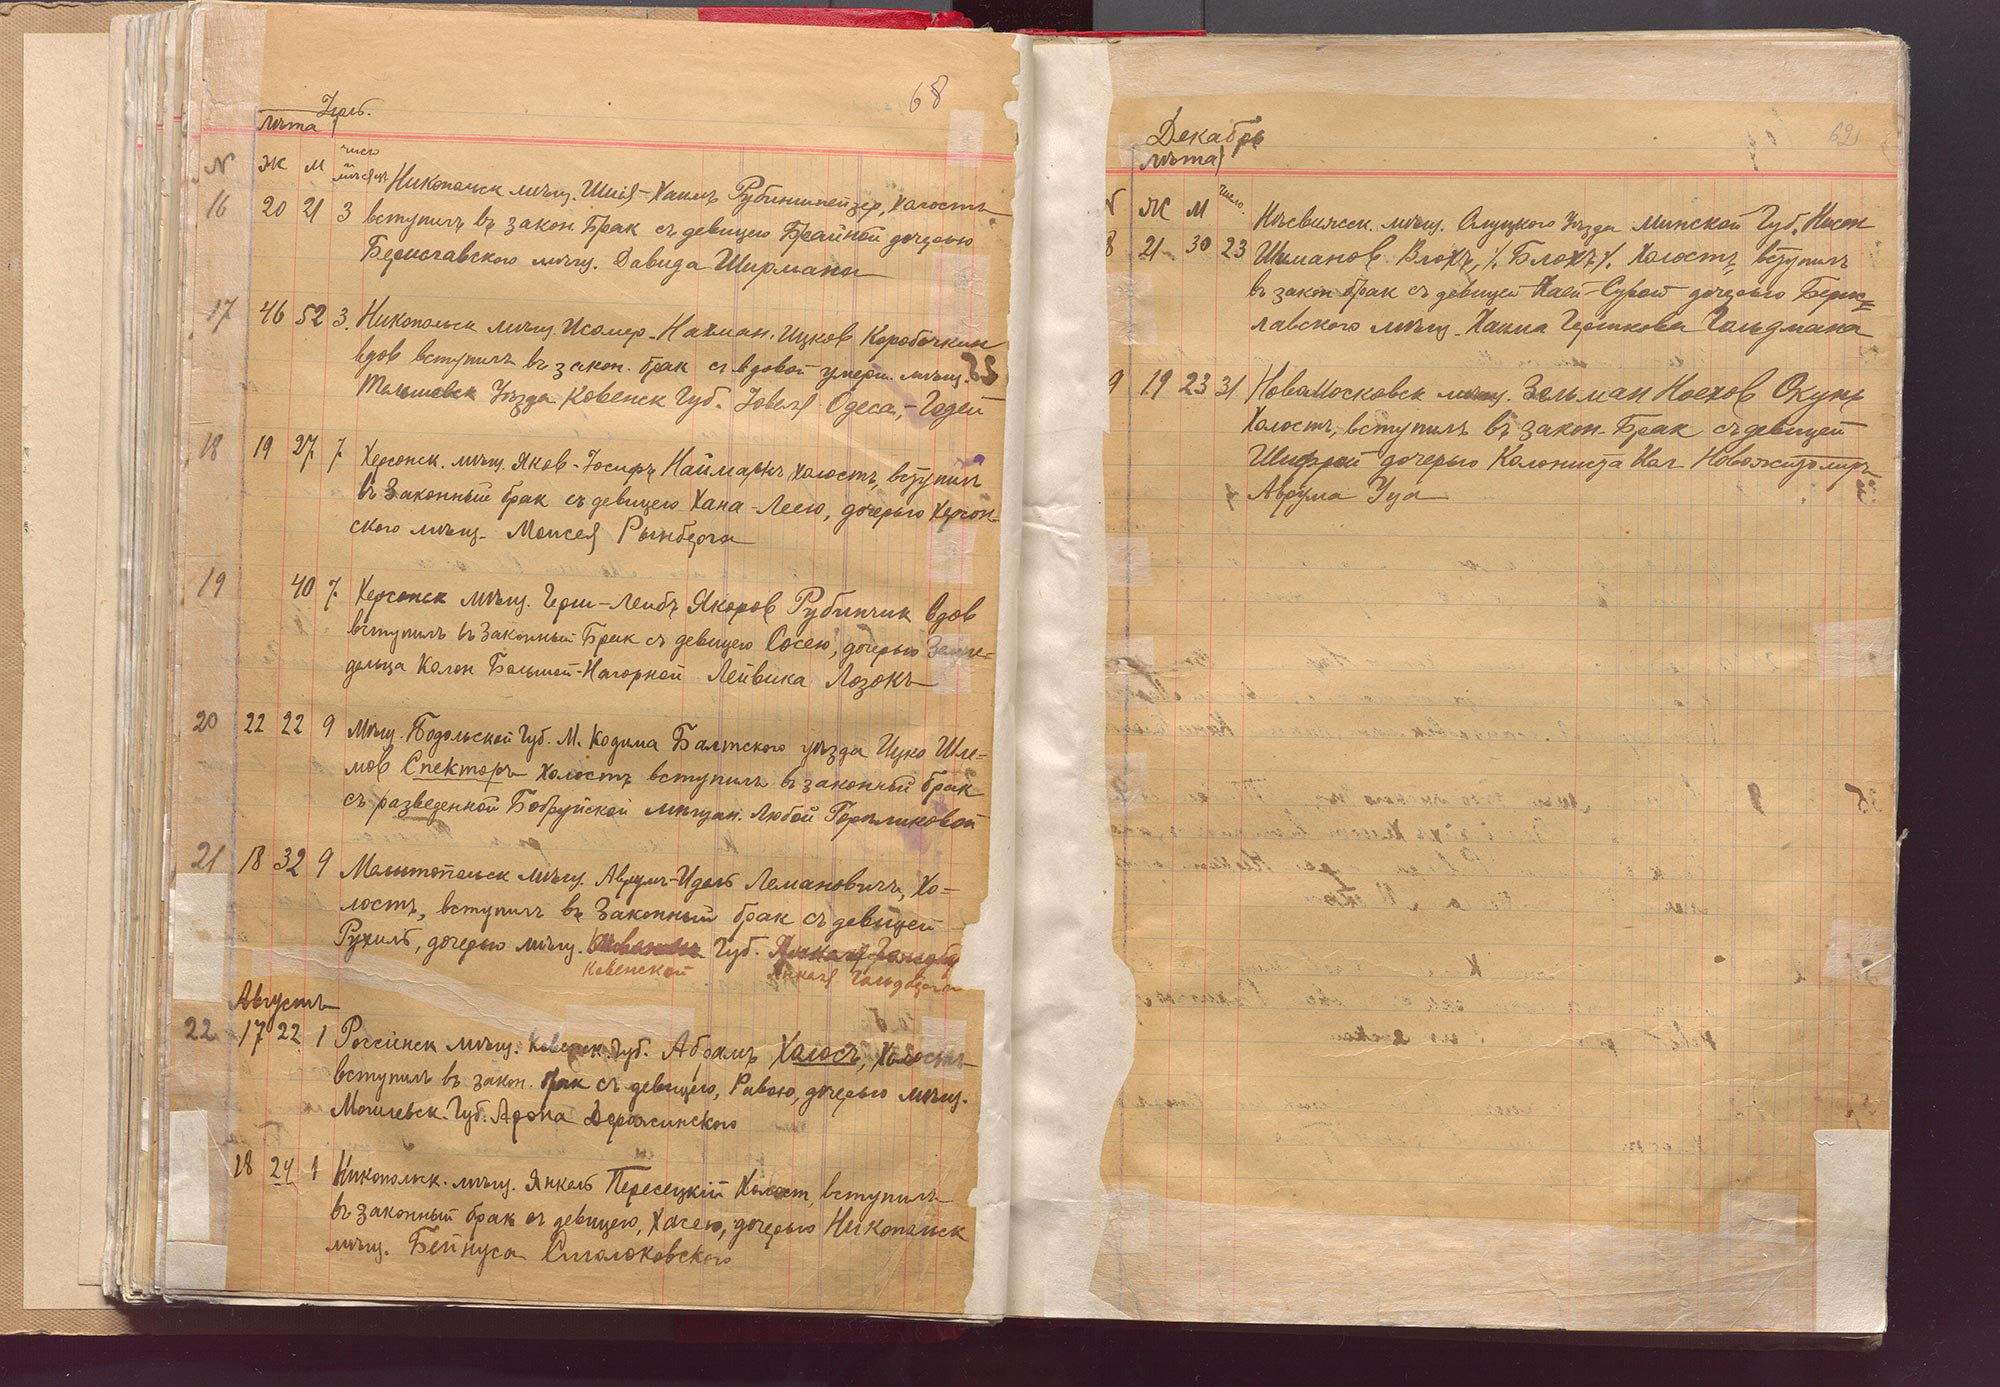 68
Іюль.
лѣта
N Ж М число
16 20 21 3 Никопольск мѣщ. Шая-Хаимъ Рубинштейзер, холостъ
вступилъ въ закон. Бракъ съ девицею Брайной дочерью
Бериславского мѣщ. Давида Ширмана
17 46 52 3. Никопольск мѣщ. Исомер-Нахман. Ицков Коробочкин
вдов вступилъ въ закон. брак съ вдовой умерш. мѣщ.
Тельшевск Уѣзда Ковенск Губ. Одеса,-Годей
18 19 27 7 Херсонск. мѣщ. Яков-Іосифъ Найманъ холостъ, вступил
въ Законный брак съ девицею Хана-Леею, дочерью Херсон-
ского мѣщ. Моисея Рынберга
19 40 7 Херсонск мѣщ. Герш-Лейбъ Якоров Рубинчик вдов
вступилъ въ Законный Брак съ девицею Сосею, дочерью Земле=
дельца Колон Большой-Нагорной Лейвика Лозокъ
20 22 22 9 Мѣщ. Подольской Губ. М. Кодыма Балтского уѣзда Ицко Шле=
мов Спекторъ холостъ вступилъ въ законный брак
съ разведенной Бобруйской мѣщан. Любой Гореликовой
21 18 32 9 Мелитопольск мѣщ. Аврум-Идель Лемановичъ, Хо-
лостъ, вступилъ въ Законный брак съ девицей
Рухиль, дочерью мѣщ. Губ.
Ковенской Янкеля Гольдберга
Августъ
22 17 22 1 Россіенск мѣщ. Ковенск. Губ. Абрамъ Холосъ, Холостъ
вступилъ въ закон. брак съ девицею, Ривою, дочерью мѣщ.
Могилевск. Губ. Арона Деражинского
18 24 1 Никопольск. мѣщ. Янкель Пересецкій Холост, вступилъ
въ законный брак съ девицею, Хасею, дочерью Никопольск
мѣщ. Бейнуса Смолоковского
69
Декабрь
лѣта
Ж М число.
8 21 30 23 Несвижск. мѣщ. Слуцкого Уѣзда Минской Губ. Нисон
Шиманов Влохъ, /. Блохъ/. Холостъ, вступилъ
въ закон брак съ девицей Хаей-Сурой дочерью Берис=
лавского мѣщ. Хаима Гершкова Гольдмана
9 19 23 31 Новомосковск мѣщ. Зельман Ноехов Окунь
Холостъ, вступилъ въ закон. Брак съ девицей
Шифрой дочерью Колониста Кол Новожитомиръ
Аврума Уца